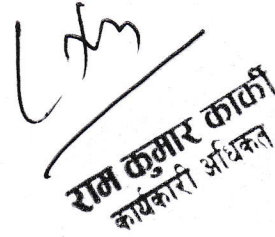 राम कुमार कार्की
कार्यकारी अधिकृत